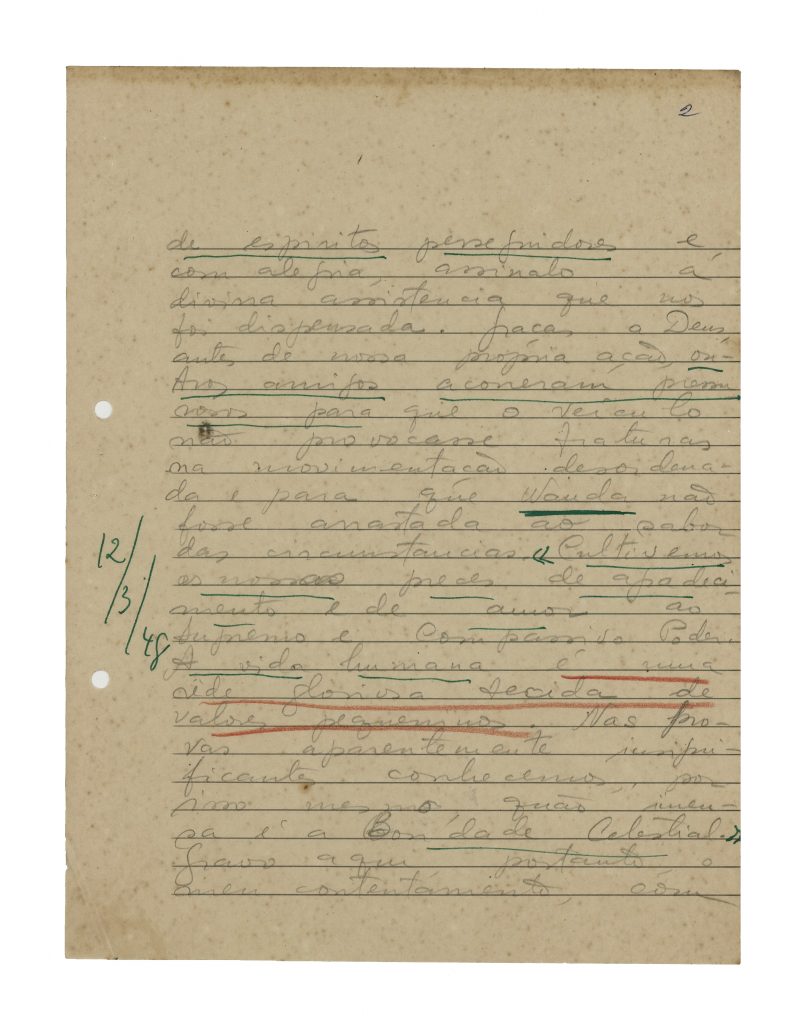 2
de espiritos perseguidores e
com alegria, assinalo á
divina assistencia que nos
foi dispensada. Graças a Deus,
antes de nossa própria ação, ou-
tros amigos acorreram, pressu
rosos para que o veículo
não provocasse fraturas
na movimentação desordena-
da e para que Wanda não
fosse arrastada ao sabor
das circunstancias. « Cultivemos
as nossas preces de agradeci
mento e de amor ao
Supremo e Compassivo Poder.
A vida humana é uma
rêde gloriosa tecida de
valores pequeninos. Nas pro-
vas aparentemente insigni-
ficantes conhecemos, por
isso mesmo, quão imen-
sa é a Bondade Celestial.»
Gravo aqui, portanto o
meu contentamento, com
12/3/48